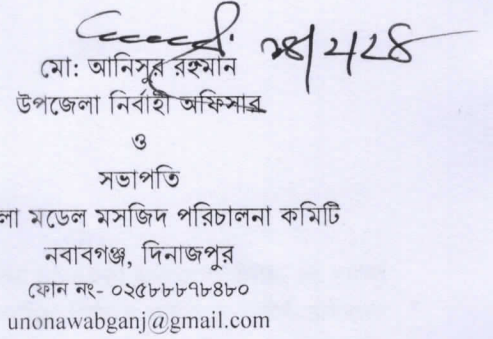 মো: আনিসুর রহমান
উপজেলা নির্বাহী অফিসার
ও
সভাপতি
লা মডেল মসজিদ পরিচালনা কমিটি
নবাবগঞ্জ, দিনাজপুর
ফোন নং- ০২৫৮৮৮৭৮৪৮০
unonawabganj@gmail.com